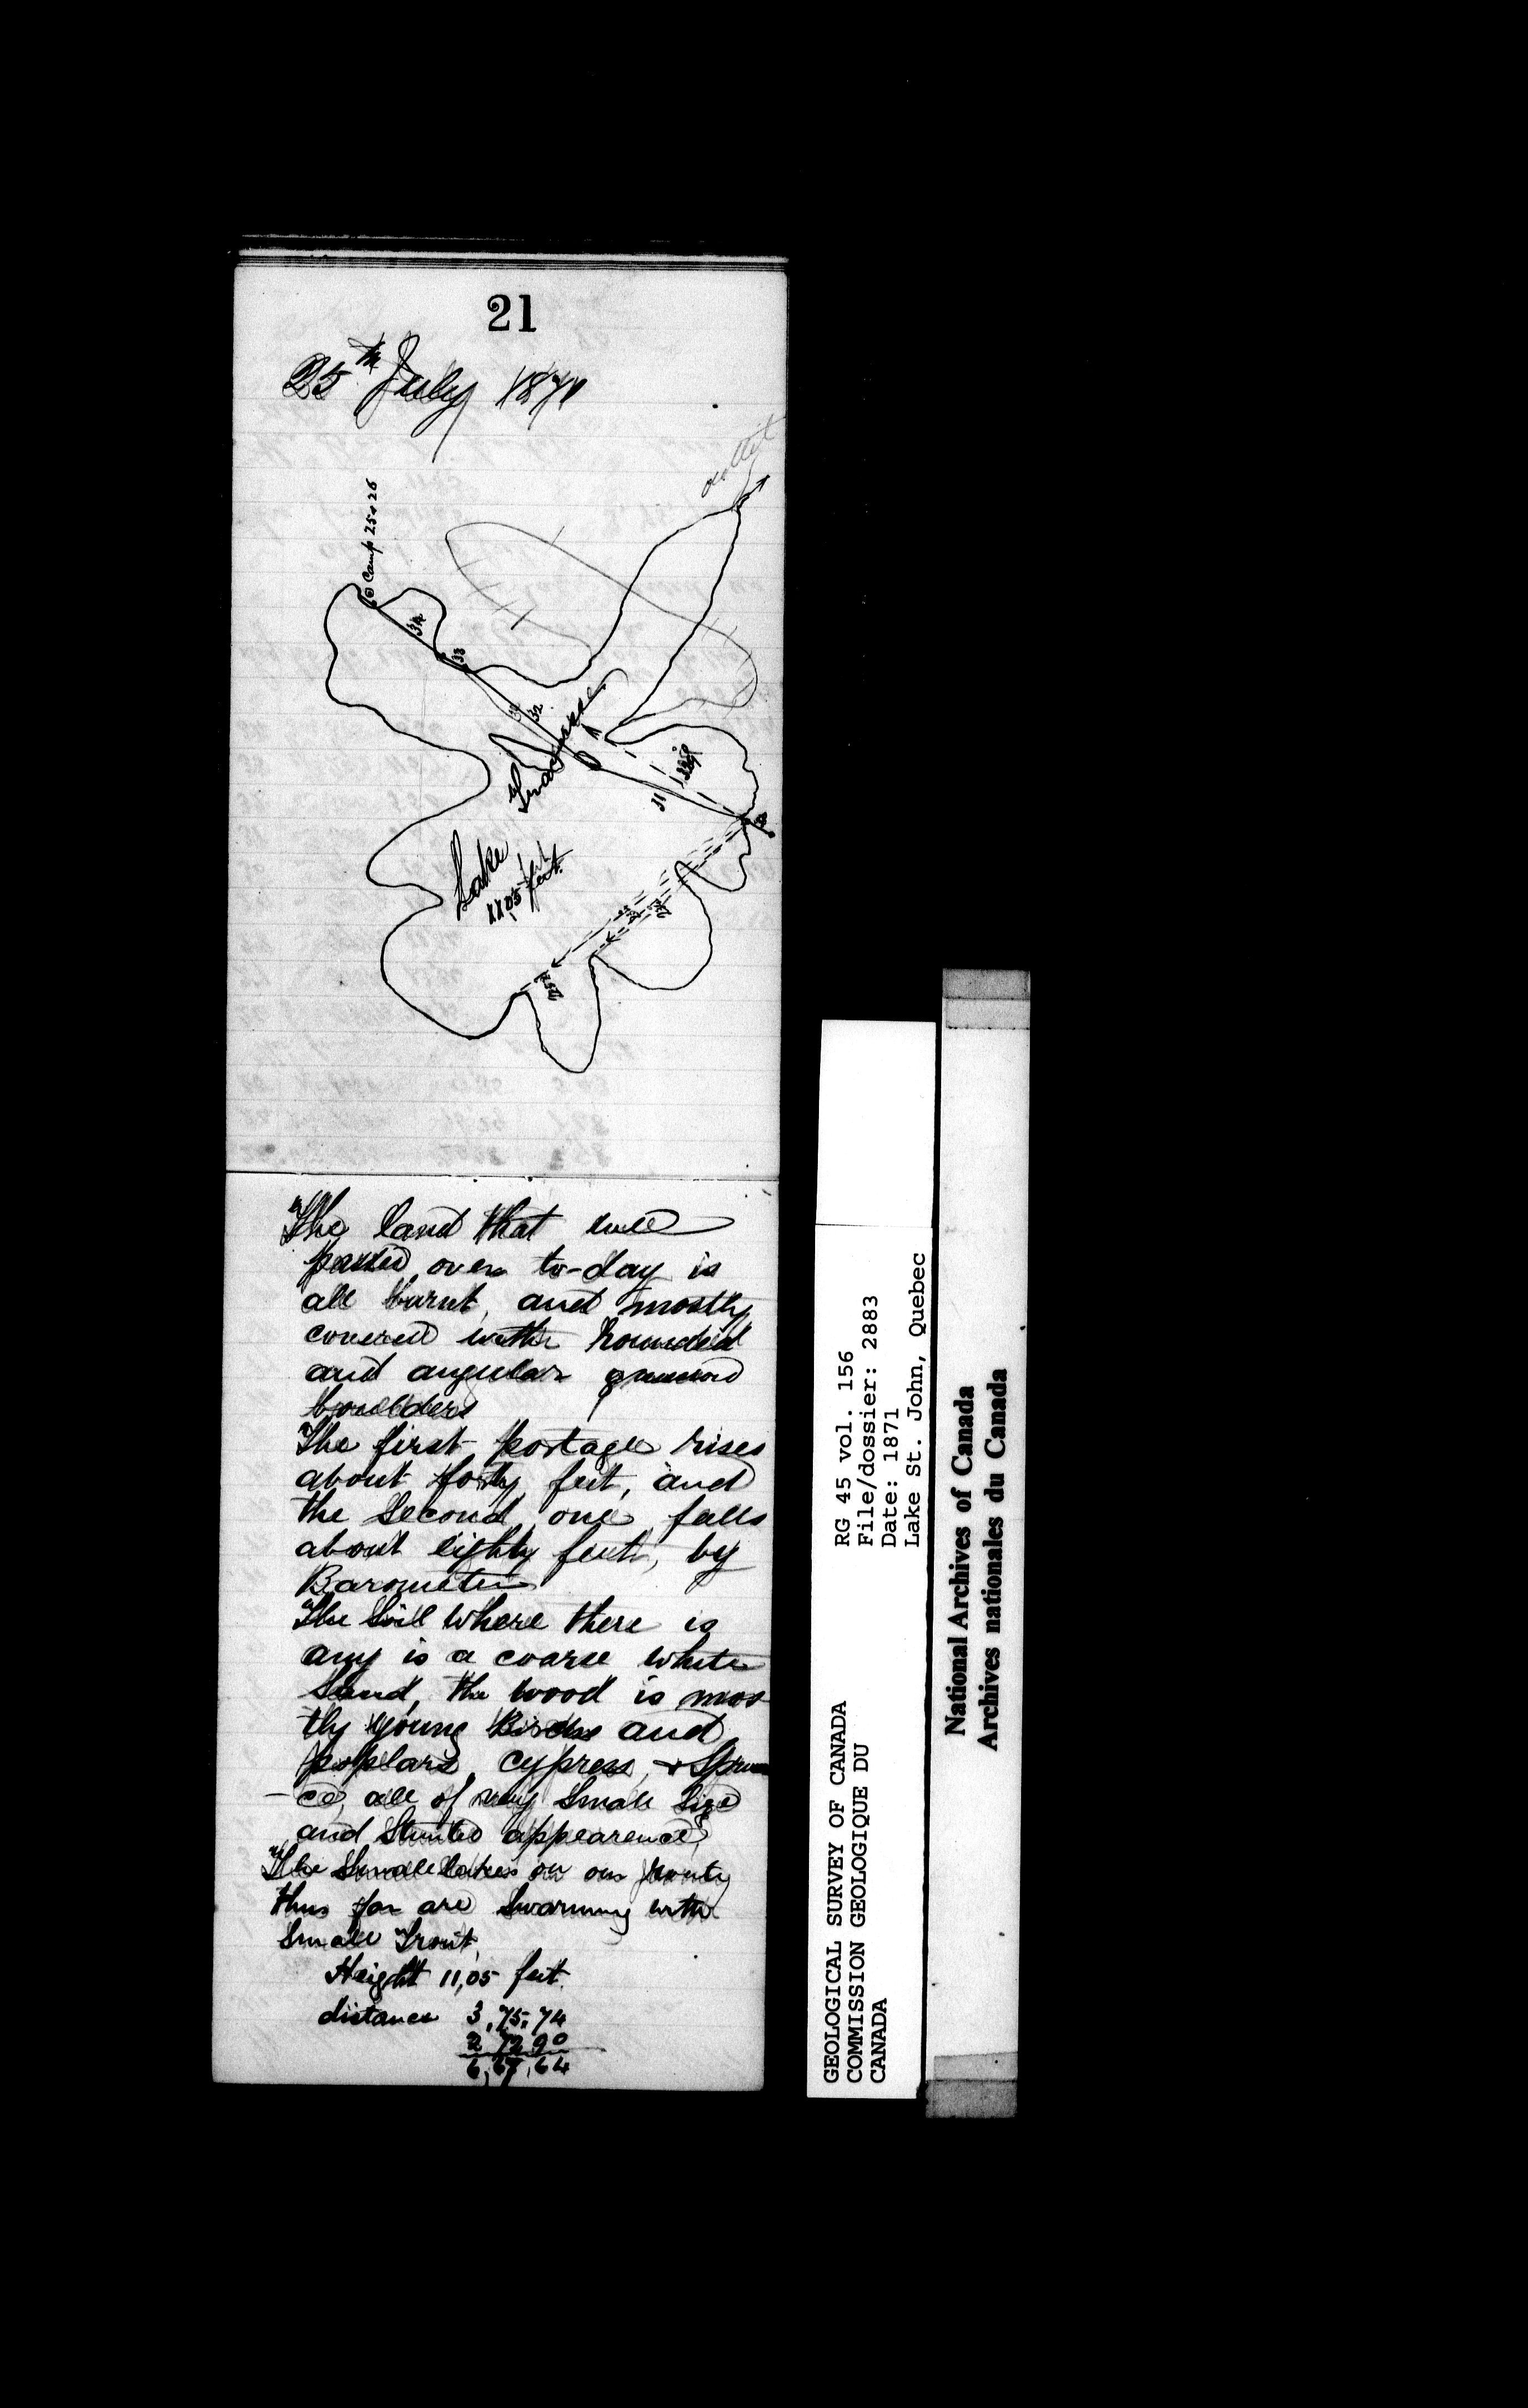 21
25th July 1871
outlet
Camp 25 & 26
34
33
32
31
Lake
1105 feet
The land that we
passed over to-day is
all burnt, and mostly
covered with rounded
and angular
boulders
The first portage rises
about forty feet, and
the second one falls
about eighty feet, by
Barometer
The Soil where there is
any is a coarse white
Sand, the wood is mos
tly young Birche and
poplars, cypress, & Spru
-ce, all of very Small Size
and Stunted appearence,
The Small lakes on our
thus far are Swarming with
Small Trout,
Height 11,05 feet.
distance 3,75,74
2 72 90
6,67,64
RG 45 vol. 156
File/dossier: 2883
Date: 1871
Lake St. John, Quebec
GEOLOGICAL SURVEY OF CANADA
COMMISSION GEOLOGIQUE DU
CANADA
National Archives of Canada
Archives nationales du Canada